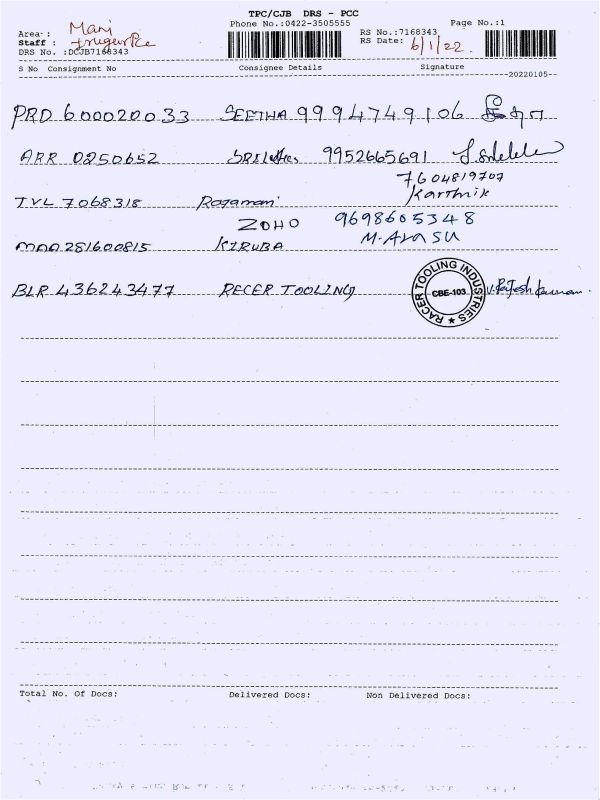 TPC/CJB DRS - PCC
Phone No.:0422-3505555 Page No.:1
Area : Mani
Staff :
RS No.:7168343
RS Date: 6/1/22
DRS No. :DCJB7168343
S No Consignment No Consignee Details Signature
20220105
PRD 600020033 SEETHA 9994749106
ARR 0250652 9952665691
7604819707
TVL 7068318 Rogamani Karthik
ZOHO 9698605348
MAA 281600815 KIRUBA M. Arasu
BLR 436243477 RECER TOOLING RACER TOOLING INDUSTRIES CBE-103
Total No. Of Docs: Delivered Docs: Non Delivered Docs: